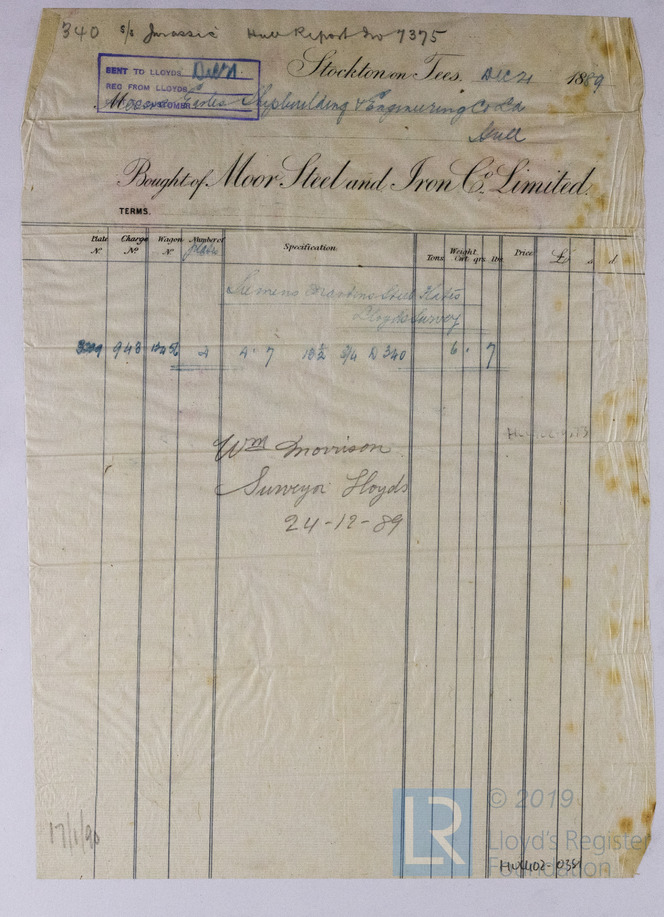 340 s/s Jurassic Hull Report No 7375
SENT TO LLOYDS Dec 21
REC FROM LLOYDS
CUSTOMER
Stockton on Tees. Dec 21 1889
M Earles Shipbuilding & Engineering Co Ld
Hull
Bought of Moor Steel and Iron Co. Limited.
TERMS.
Plate No. Charge No. Wagon No. Number of plates Specification Weight Tons Cwt. qrs. lbs. Price £ s d
Siemens Martins Steel Plates
Lloyds Survey
943 4 4. 7 18½ 3/4 D 340 6. 7
Wm Morrison
Surveyor Lloyds
24-12-89
17/1/90
LR © 2019
Lloyd's Register
Foundation